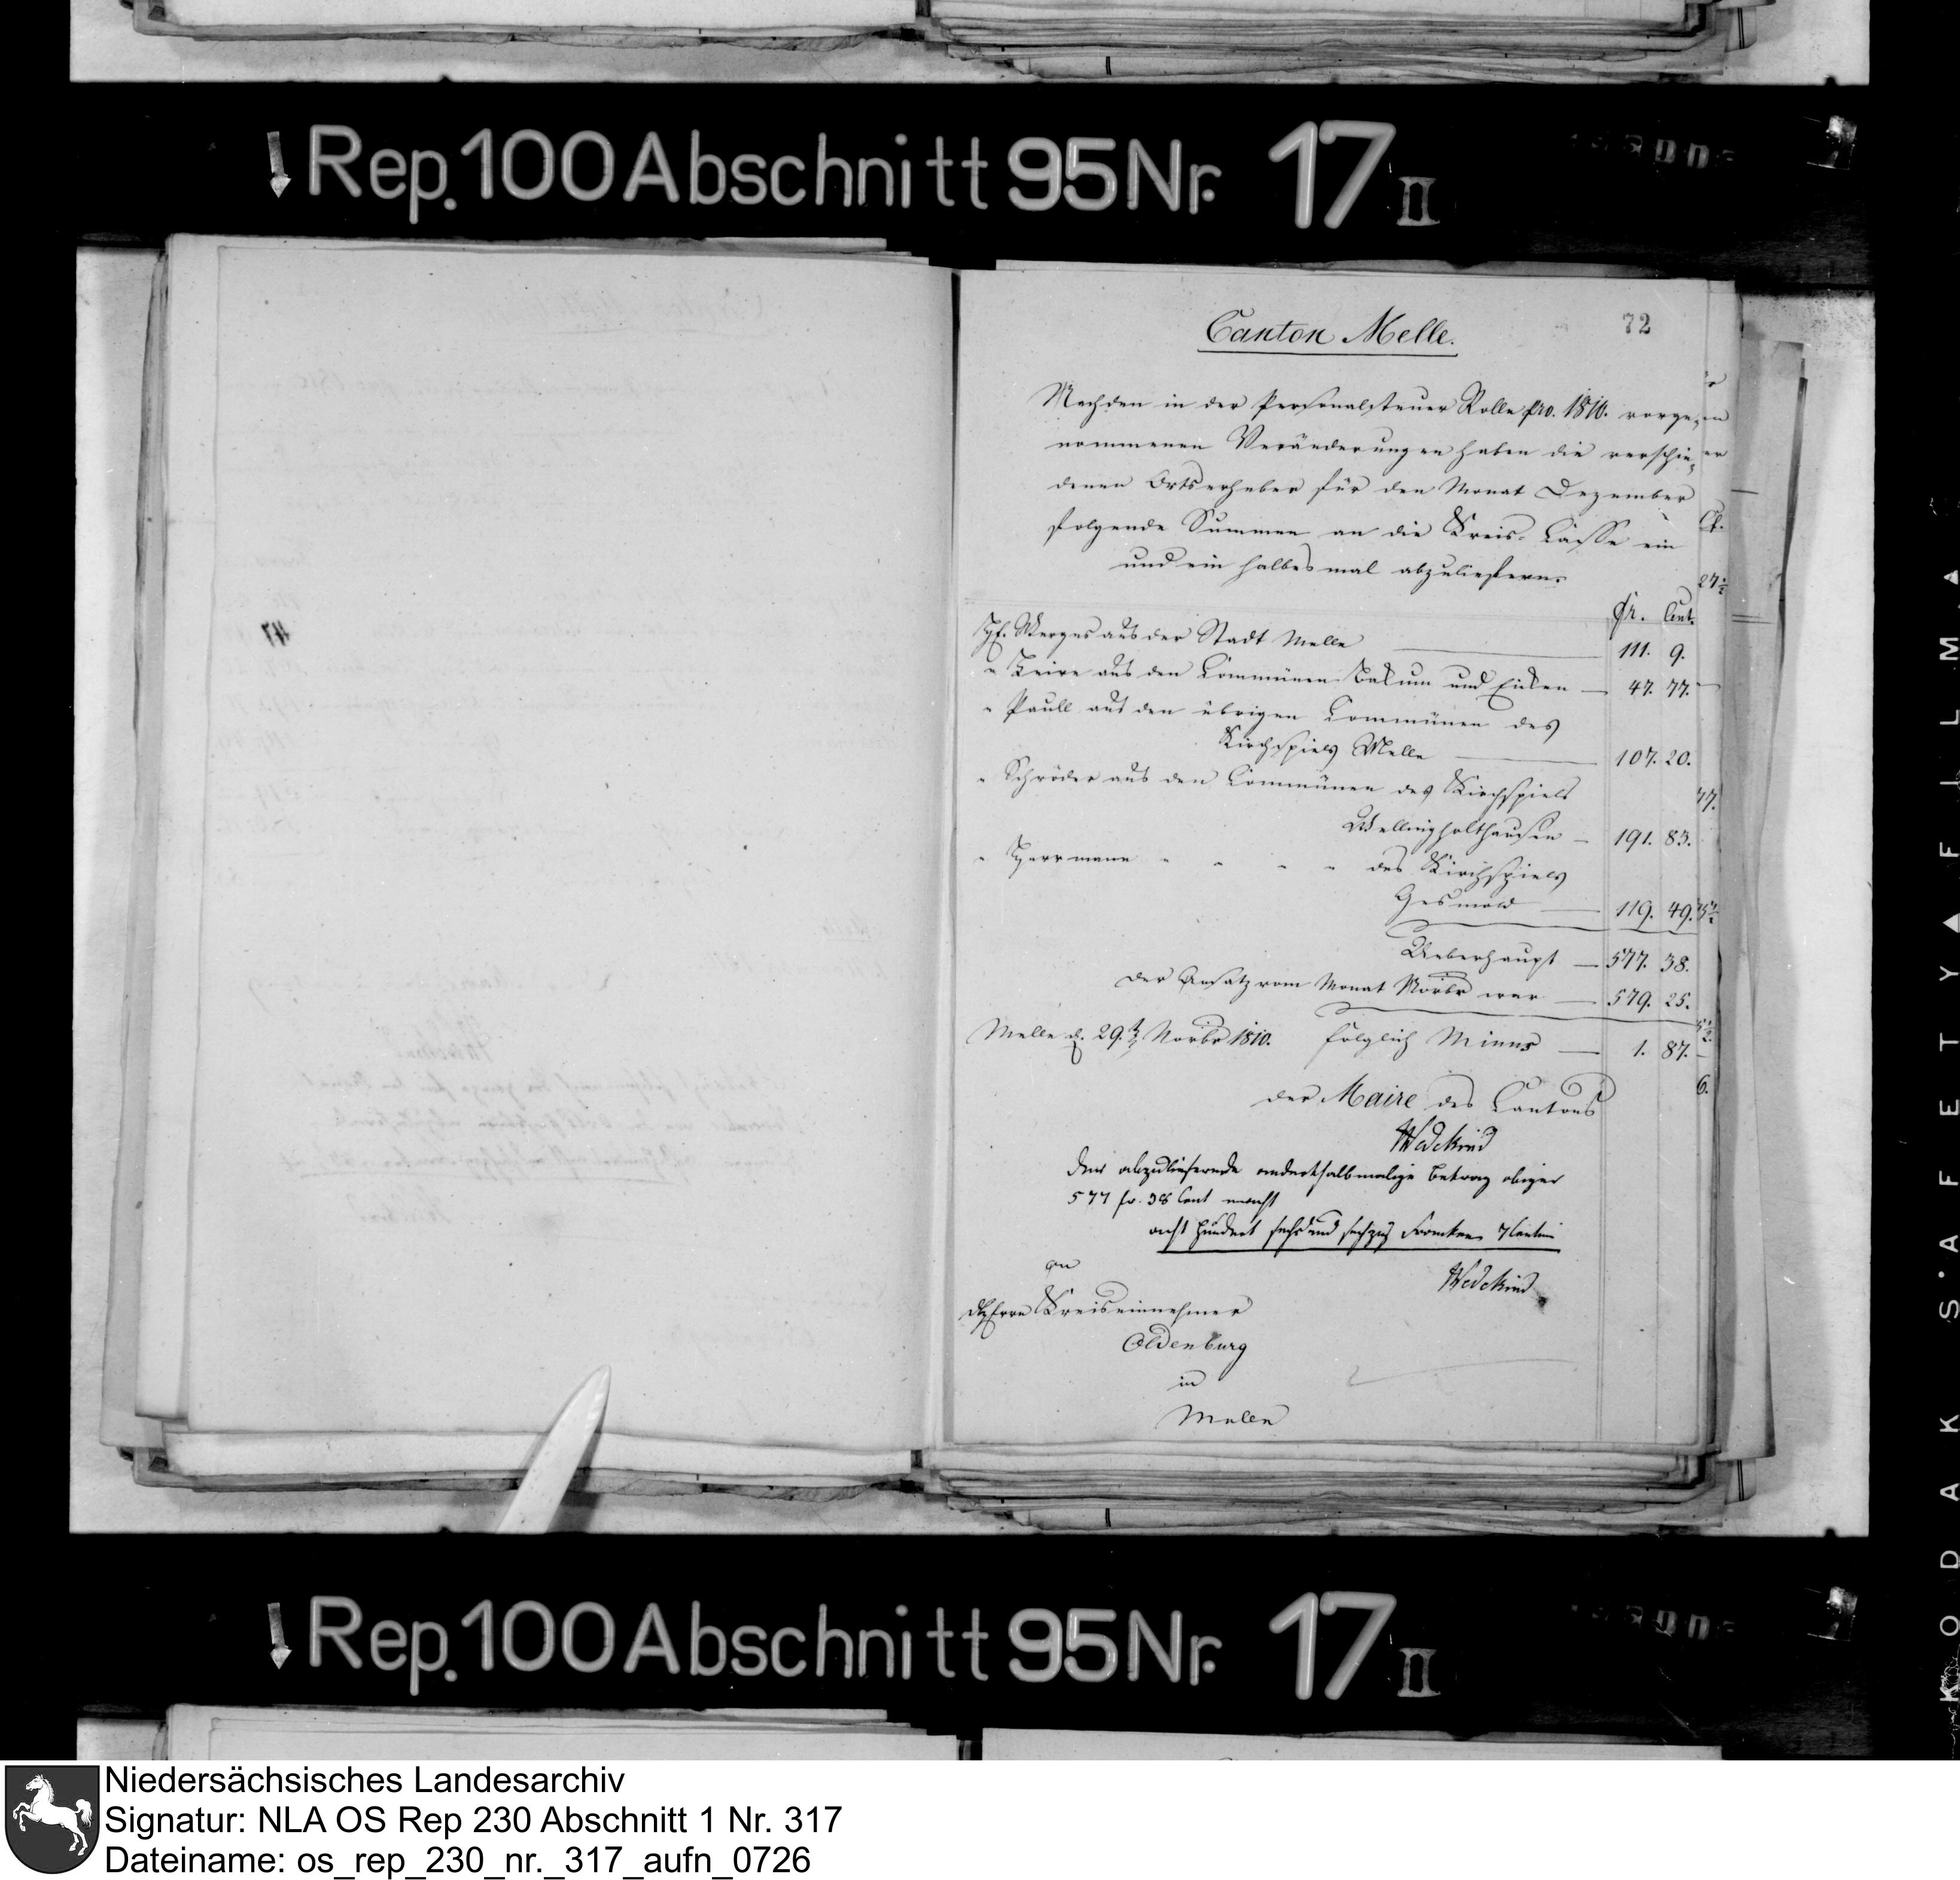 Rep. 100 Abschnitt 95 Nr. 17 II
72
Canton Melle.
Nach den in der Personalsteuer Rolle pro. 1810. vorge-
nommenen Veränderungen haben die verschie-
denen Ortserheber für den Monat Dezember
folgende Summen an die Kreis-Casse ein
und ein halbes mal abzuliefern.
fr. Cent.
aus der Stadt Melle 111. 9.
" aus den Communen Bakum und Eicken 47. 77.
" Paull aus den übrigen Communen des
Kirchspiels Melle 107. 20.
" Schröder aus den Communen des Kirchspiels
Wellingholthausen 191. 83.
" Herrmann " " " " des Kirchspiels
Gesmold 119. 49.
Ueberhaupt 577. 38.
der Ansatz vom Monat Novbr war 579. 25.
Melle d. 29. Novbr 1810. folglich Minus 1. 87.
der Maire des Cantons
Wedekind
Der abzuliefernde anderthalbmalige Betrag obiger
577 fr. 38 Cent macht
acht hundert sechs und sechzig Franken 7 Centim
Wedekind
an
Herrn Kreiseinnehmer
Oldenburg
in
Melle
Rep. 100 Abschnitt 95 Nr. 17 II
KODAK SAFETY FILM
Niedersächsisches Landesarchiv
Signatur: NLA OS Rep 230 Abschnitt 1 Nr. 317
Dateiname: os_rep_230_nr._317_aufn_0726